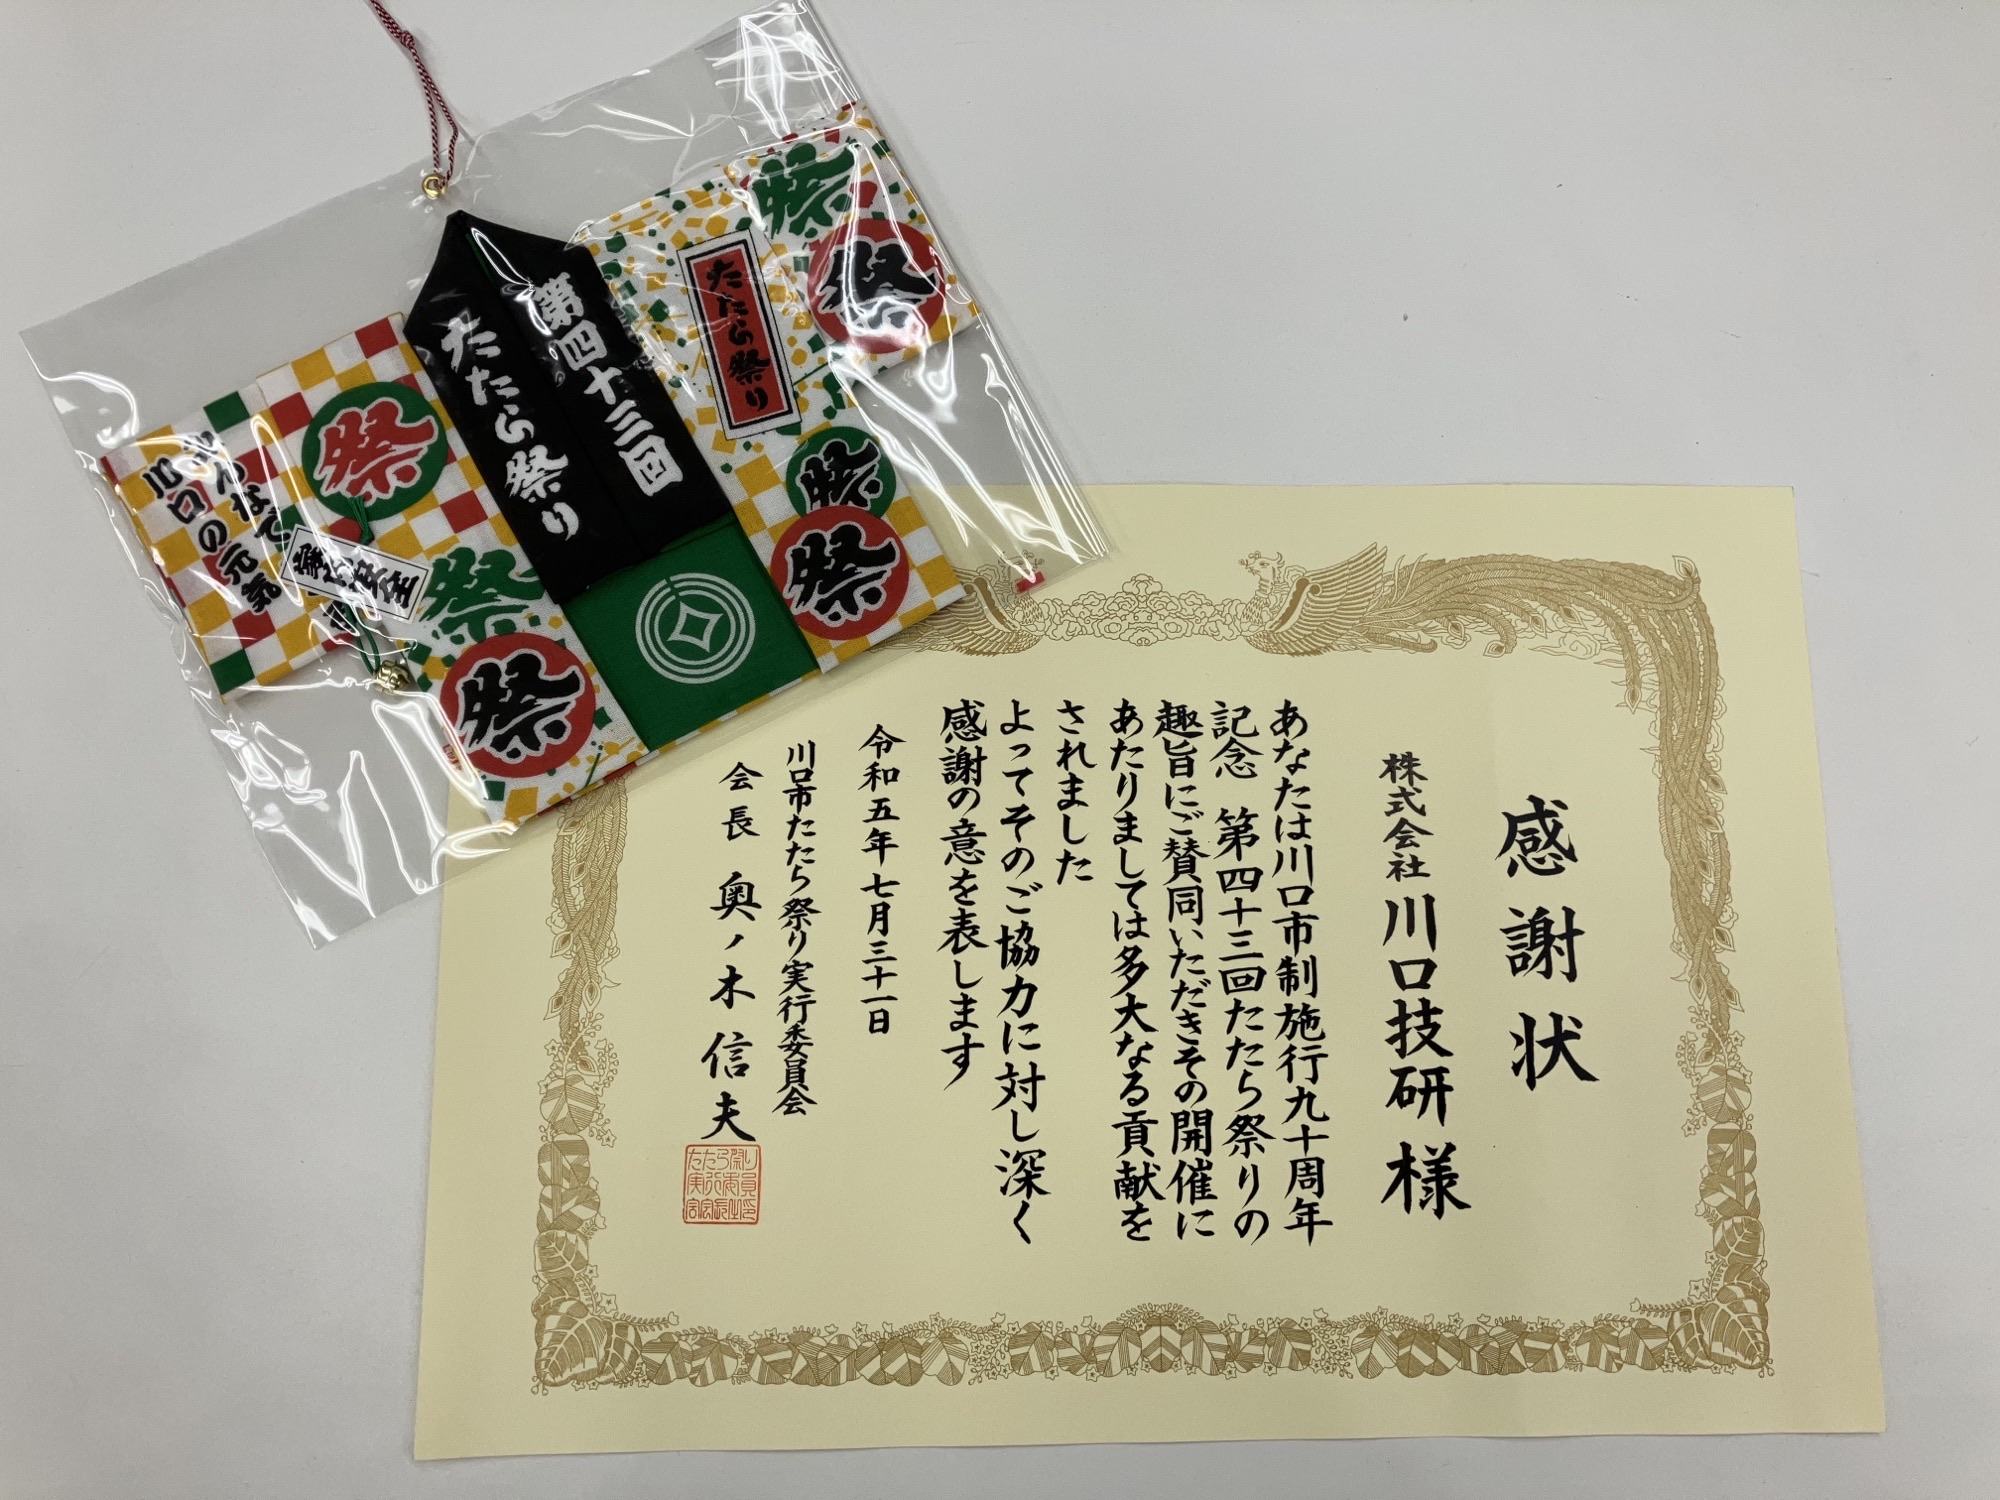 感謝状
株式会社 川口技研 様
あなたは川口市制施行九十周年
記念 第四十三回たたら祭りの
趣旨にご賛同いただきその開催に
あたりましては多大なる貢献を
されました
よってそのご協力に対し深く
感謝の意を表します
令和五年七月三十一日
川口市たたら祭り実行委員会
会長 奥ノ木信夫
第四十三回
たたら祭り
たたら祭り
祭
祭
祭
祭
祭
祭
祭
みんなで
川口の元気